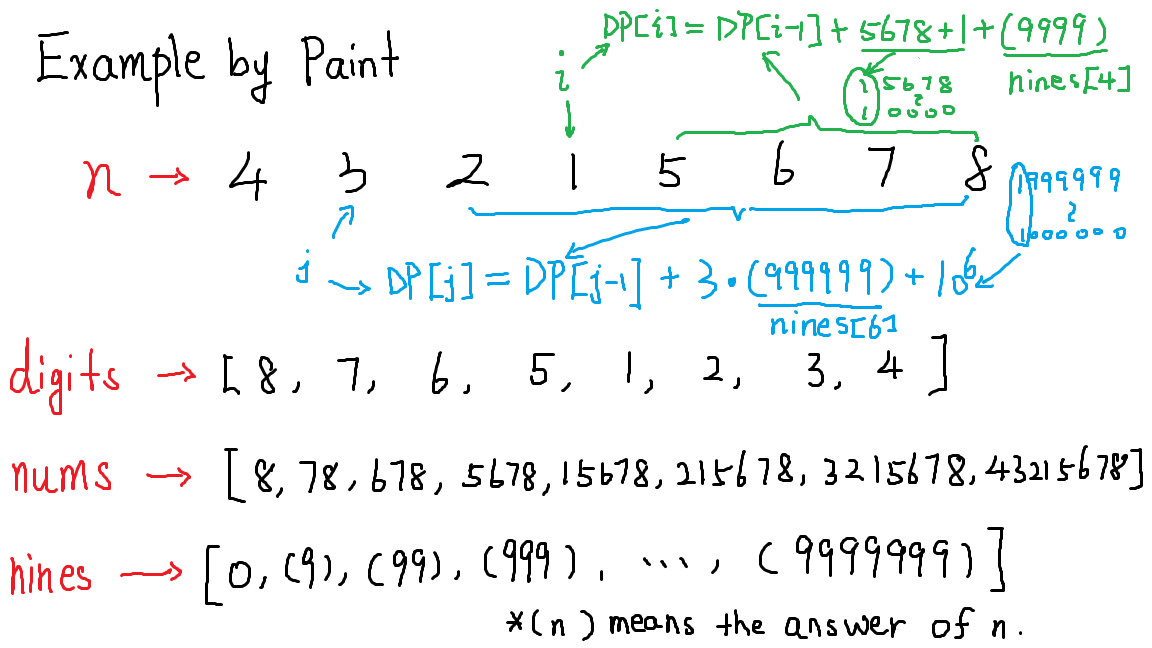 DP[i] = DP[i-1] + 5678+1 + (9999)
Example by Paint
i
1 5678
2
1 0000
nines[4]
n → 4 3 2 1 5 6 7 8
1999999
2
1000000
j → DP[j] = DP[j-1] + 3·(999999) + 10^6
nines[6]
digits → [8, 7, 6, 5, 1, 2, 3, 4]
nums → [8, 78, 678, 5678, 15678, 215678, 3215678, 43215678]
nines → [0, (9), (99), (999), ..., (9999999)]
*(n) means the answer of n.